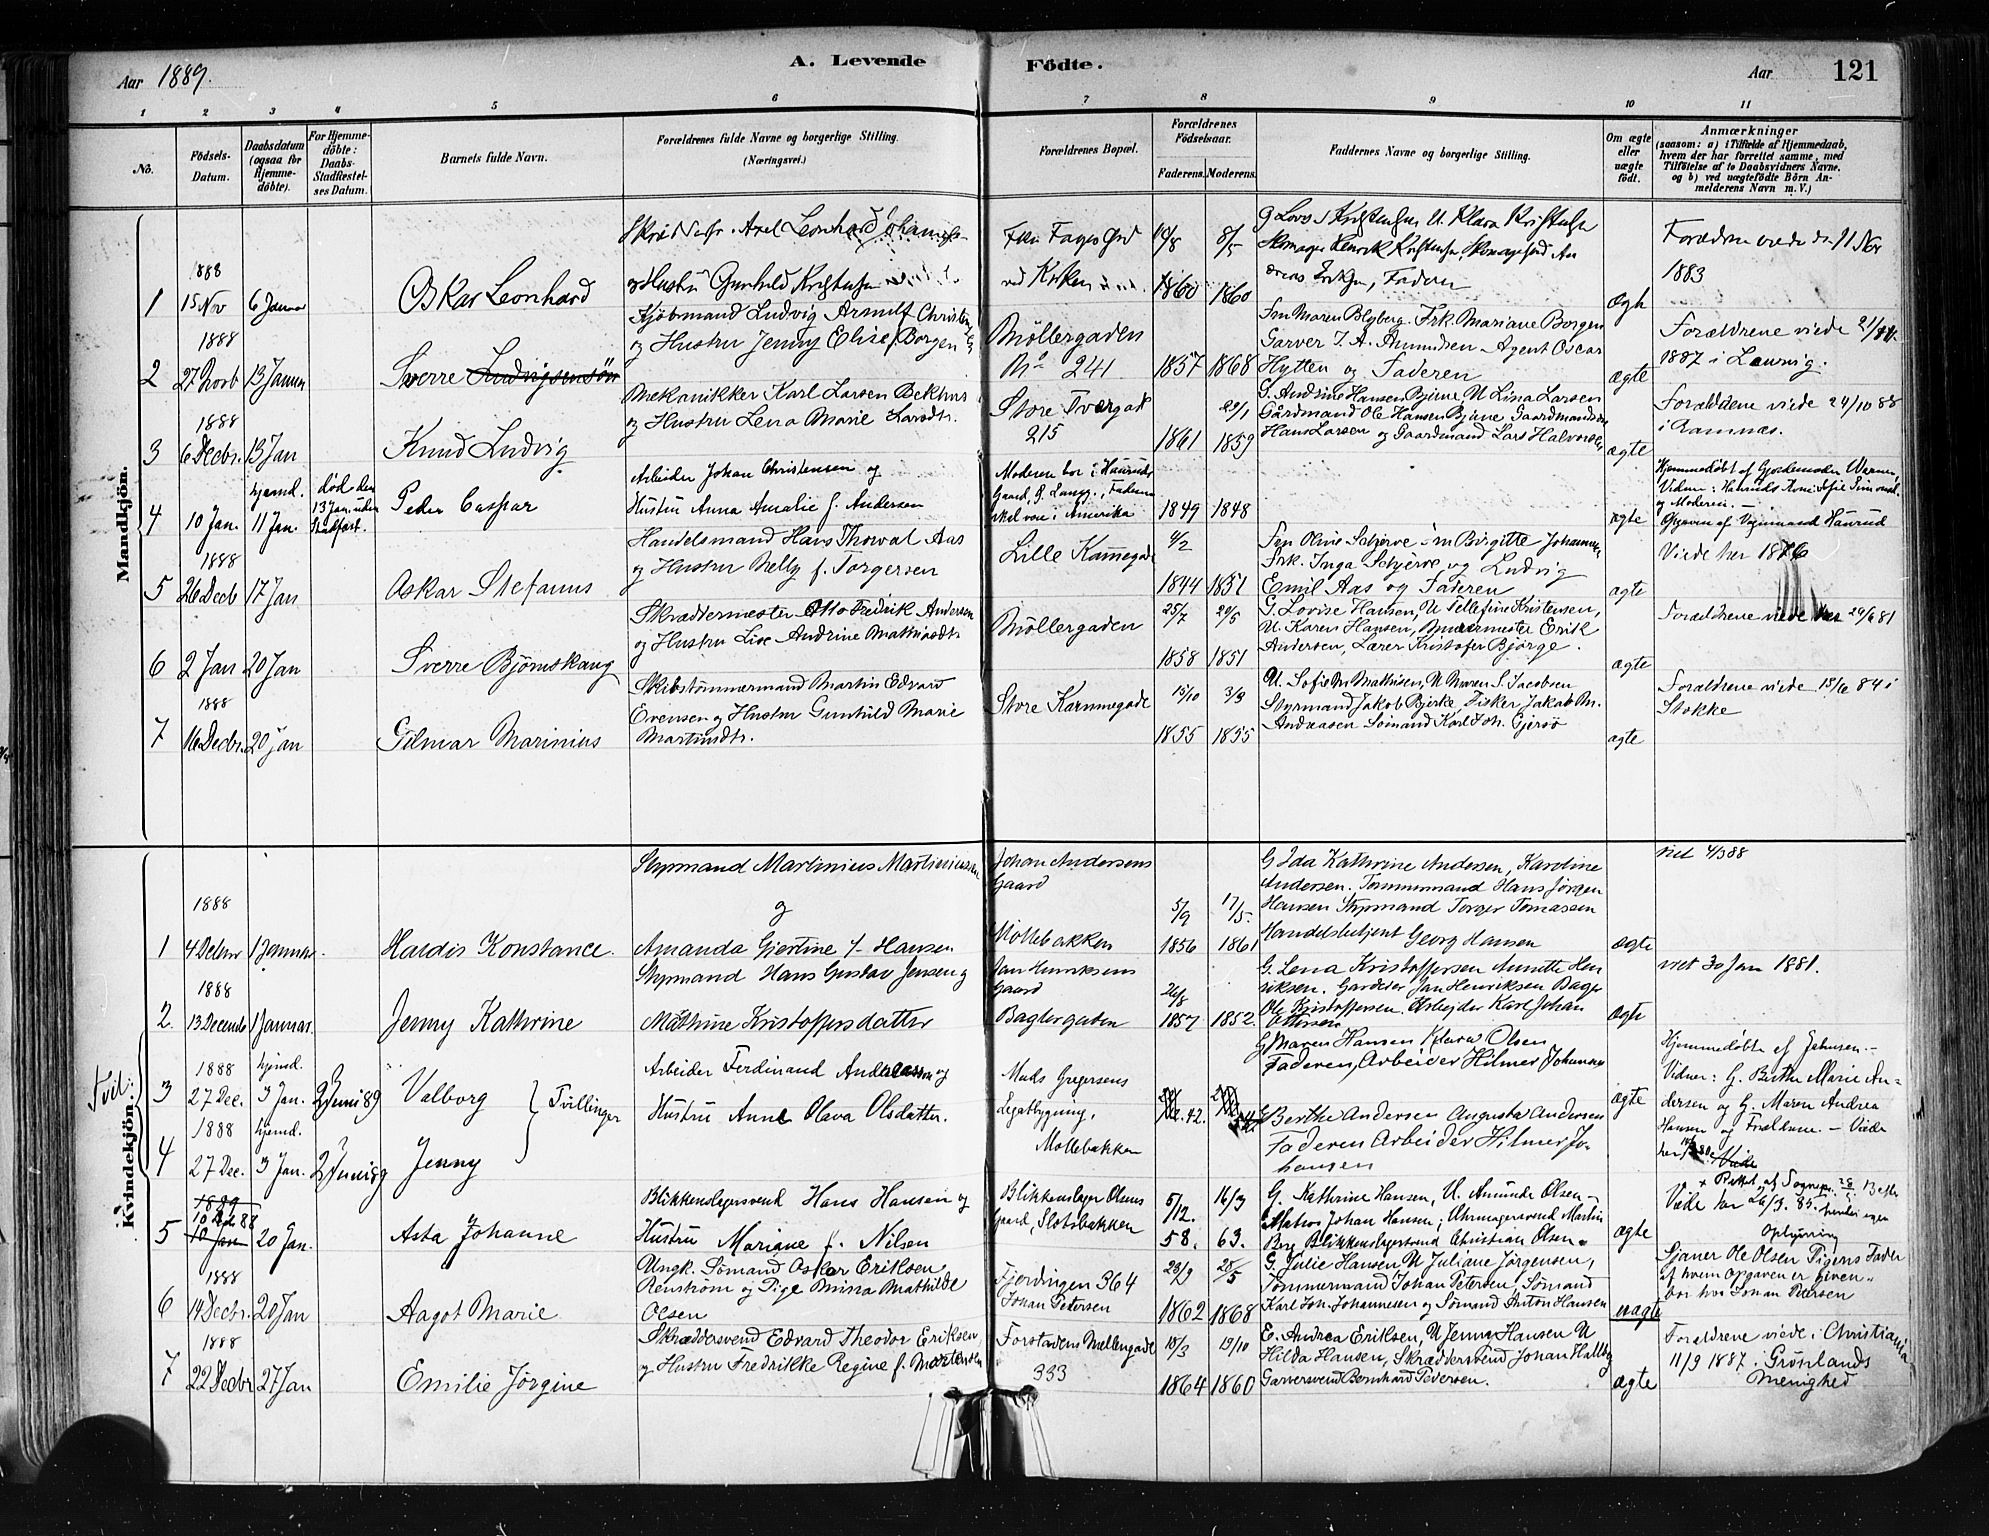 Aar 1889.
A. Levende Fødte.
Aar
121
1 2 3 4 5 6 7 8 9 10 11
No.
Fødsels-Datum.
Daabsdatum (ogsaa for Hjemme-døbte).
For Hjemme-døbte: Daabs-Stadfæstel-ses Datum.
Barnets fulde Navn.
Forældrenes fulde Navne og borgerlige Stilling. (Næringsvei.)
Forældrenes Bopæl.
Forældrenes Fødselsaar.
Faderens. Moderens.
Faddernes Navne og borgerlige Stilling.
Om ægte eller uægte født.
Anmærkninger
(saasom: a) i Tilfælde af Hjemmedaab, hvem der har forrettet samme, med Tilføielse af to Daabsvidners Navne, og b) ved uægtefødte Børn Anmelderens Navn m. V.)
Mandkjön.
1
1888
15 Nov
6 Januar
Oskar Leonhard
Axel Leonhard
og Hustru Gunhild
1860
1860
Faderen
Ægte
1883
2
1888
27 Novb
13 Januar
Sverre Ludvigsensön
Kjøbmand Ludvig Arnulf
og Hustru Jenny Elise f. Borgen
Möllergaden
No 241
1857
1868
Fru Maren Blyberg. Frk. Mariane Borgen
Garver I. A. Amundsen Agent Oscar
Hytten og Faderen
ægte
Forældrene viede
1887 i Laurvig.
3
1888
6 Decbr.
13 Jan
Knud Ludvig
Mekanikker Karl Larsen Bekhus
og Hustru Lena Marie Larsdtr.
Store Tvergade
215
1861
29/1
1859
G. Andrine Hansen Bjune U Lina Larsen
Gårdmand Ole Hansen Bjune Gaardmandssön
Hans Larsen og Gaardmand Lars Halvorsen
ægte
Forældrene viede 24/10 88
i Ramnæs.
4
10 Jan.
hjemd.
11 Jan.
död den
13 Jan. uden
Stadfæst.
Peder Caspar
Arbeider Johan Christensen og
Hustru Anna Amalie f. Andersen
Moderen bor i Hauruds
Gaard, Faderen
skal være i Amerika
1849
1848
ægte
Hjemmedöbt af Gjordemoder
og Moderen. —
Opgaven af Haurud
5
1888
26 Decb
17 Jan
Oskar Stefanus
Handelsmand Hans Thorval Aas
og Hustru Nelly f. Torgersen
Lille Kannegade
4/2
1844
1851
Fru Oline Schjerve Fru Birgitte Johannesen
Frk. Inga Schjerve og Ludvig
Emil Aas og Faderen
ægte
Viede her 1876
6
2 Jan
20 Jan
Sverre Björnskaug
Skræddermester Otto Fredrik Andersen
og Hustru Lise Andrine Mathiasdtr
Möllergaden
25/7
1858
20/5
1851
G. Lovise Hansen, U Pellefine Kristensen,
U. Karen Hansen, Murermester Erik
Andersen, Lærer Kristofer Bjørge.
ægte
Forældrene viede her 29/6 81
7
1888
16 Decbr.
20 Jan
Gilmar Marinius
Skibstömmermand Martin Edvard
Evensen og Hustru Gunhild Marie
Martinsdtr.
Store Kannegade
15/10
1855
3/9
1855
U. Sofie M Mathisen, U Maren S. Jacobsen
Styrmand Jakob Bjerke, Fisker Jakob M.
Andreasen Sömand Karl Joh. Gjersö
ægte
Forældrene viede 15/6 84 i
Stokke
Kvindekjön.
1
1888
4 Decbr
1 Januar.
Hardis Konstance.
Styrmand Martinius Martiniussen
og
Amanda Gjertine f. Hansen
Johan Andersens
Gaard
Möllebakken
5/9
1856
17/5.
1861
G Ida Kathrine Andersen, Karoline
Andersen. Tømmermand Hans Jørgen
Hansen Styrmand Torger Tomassen
Handelsbetjent Georg Hansen
ægte
viet 4/3 88
2.
1888
13 Decemb
1 Januar.
Jenny Kathrine
Styrmand Hans Gustav Jensen og
Mathine Kristoffersdatter
Jan Henriksens
Gaard
Baglergaten
26/8
1857
1852.
G. Lena Kristoffersen Annette Hen
riksen. Gardeder Jan Henriksen Bager
Ole Kristoffersen. Arbejder Karl Johan
Ottersen
Ægte
viet 30 Jan 1881.
Tvil:
3
1888
27 Dec.
hjemd.
3 Jan.
2 Juni 89
Valborg
} Tvillinger
Arbeider Ferdinand Andreassen og
Hustru Anne Olava Olsdatter.
Mads Gregersens
Legatbygning,
Möllebakken
42.
G Maren Hansen Klara Olsen
Faderen, Arbeider Hilmer Johannesen
ægte
Hjemmedöbte af Jehnsen. —
Vidner: G. Berthe Marie An-
dersen og G. Maren Andrea
Hansen og Forældrene. — Viede
her
4
1888
27 Dec.
hjemd.
3 Jan.
2 Juni 89
Jenny
G Berthe Andersen Augusta Andersen
Faderen Arbeider Hilmer Jo-
hansen
5
1889
10 Dec 88
10 Jan
20 Jan.
Asta Johanne
Blikkenslagersvend Hans Hansen og
Hustru Mariane f. Nilsen
Blikkenslager Olsens
Gaard, Slotsbakken
5/12.
58.
16/3
63.
G. Kathrine Hansen, U. Amunda Olsen —
Matros Johan Hansen, Uhrmagersvend Martin
Berg Blikkenslagersvend Christian Olsen.
ægte
Viede her 26/3. 85.
Oplysning
6
1888
14 Decbr.
20 Jan
Aagot Marie
Ungk. Sömand Oskar Eriksen
Renström og Pige Minsa Mathilde
Olsen
Fjerdingen 364
Johan Petersen
23/9
1862
25/5
1868
G. Julie Hansen U Juliane Jørgensen,
Tømmermand Johan Petersen, Sömand
Karl Joh. Johannesen og Sömand Anton Hansen
uægte
Sjauer Ole Olsen Pigens Fader
af hvem Opgaven er given —
bor hos Johan Petersen
7
1888
22 Decbr
27 Jan
Emilie Jörgine
Skræddersvend Edvard Theodor Eriksen
og Hustru Fredrikke Regine f. Mortensen
Forstadens Møllegade
333
18/3
1864
19/10
1860
E. Andrea Eriksen, U Jenny Hansen U
Hilda Hansen, Skræddersvend Johan Halberg
Garversvend Bernhard Pedersen.
ægte
Forældrene viede i Christiania
11/9 1887. Grønlands
Menighed